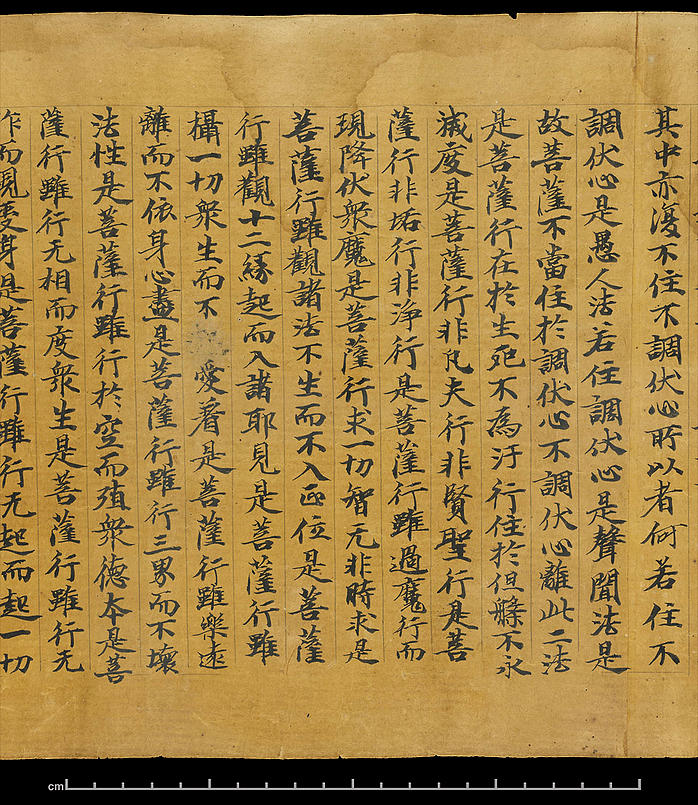 其中亦復不住不調伏心所以者何若住不
調伏心是愚人法若住調伏心是聲聞法是
故菩薩不當住於調伏心不調伏心離此二法
是菩薩行在於生死不為汙行住於涅槃不永
滅度是菩薩行非凡夫行非賢聖行是菩
薩行非垢行非淨行是菩薩行雖過魔行而
現降伏衆魔是菩薩行求一切智无非時求是
菩薩行雖觀諸法不生而不入正位是菩薩
行雖觀十二緣起而入諸耶見是菩薩行雖
攝一切衆生而不愛著是菩薩行雖樂遠
離而不依身心盡是菩薩行雖行三界而不壞
法性是菩薩行雖行於空而殖衆德本是菩
薩行雖行无相而度衆生是菩薩行雖行无
作而現受身是菩薩行雖行无起而起一切
cm